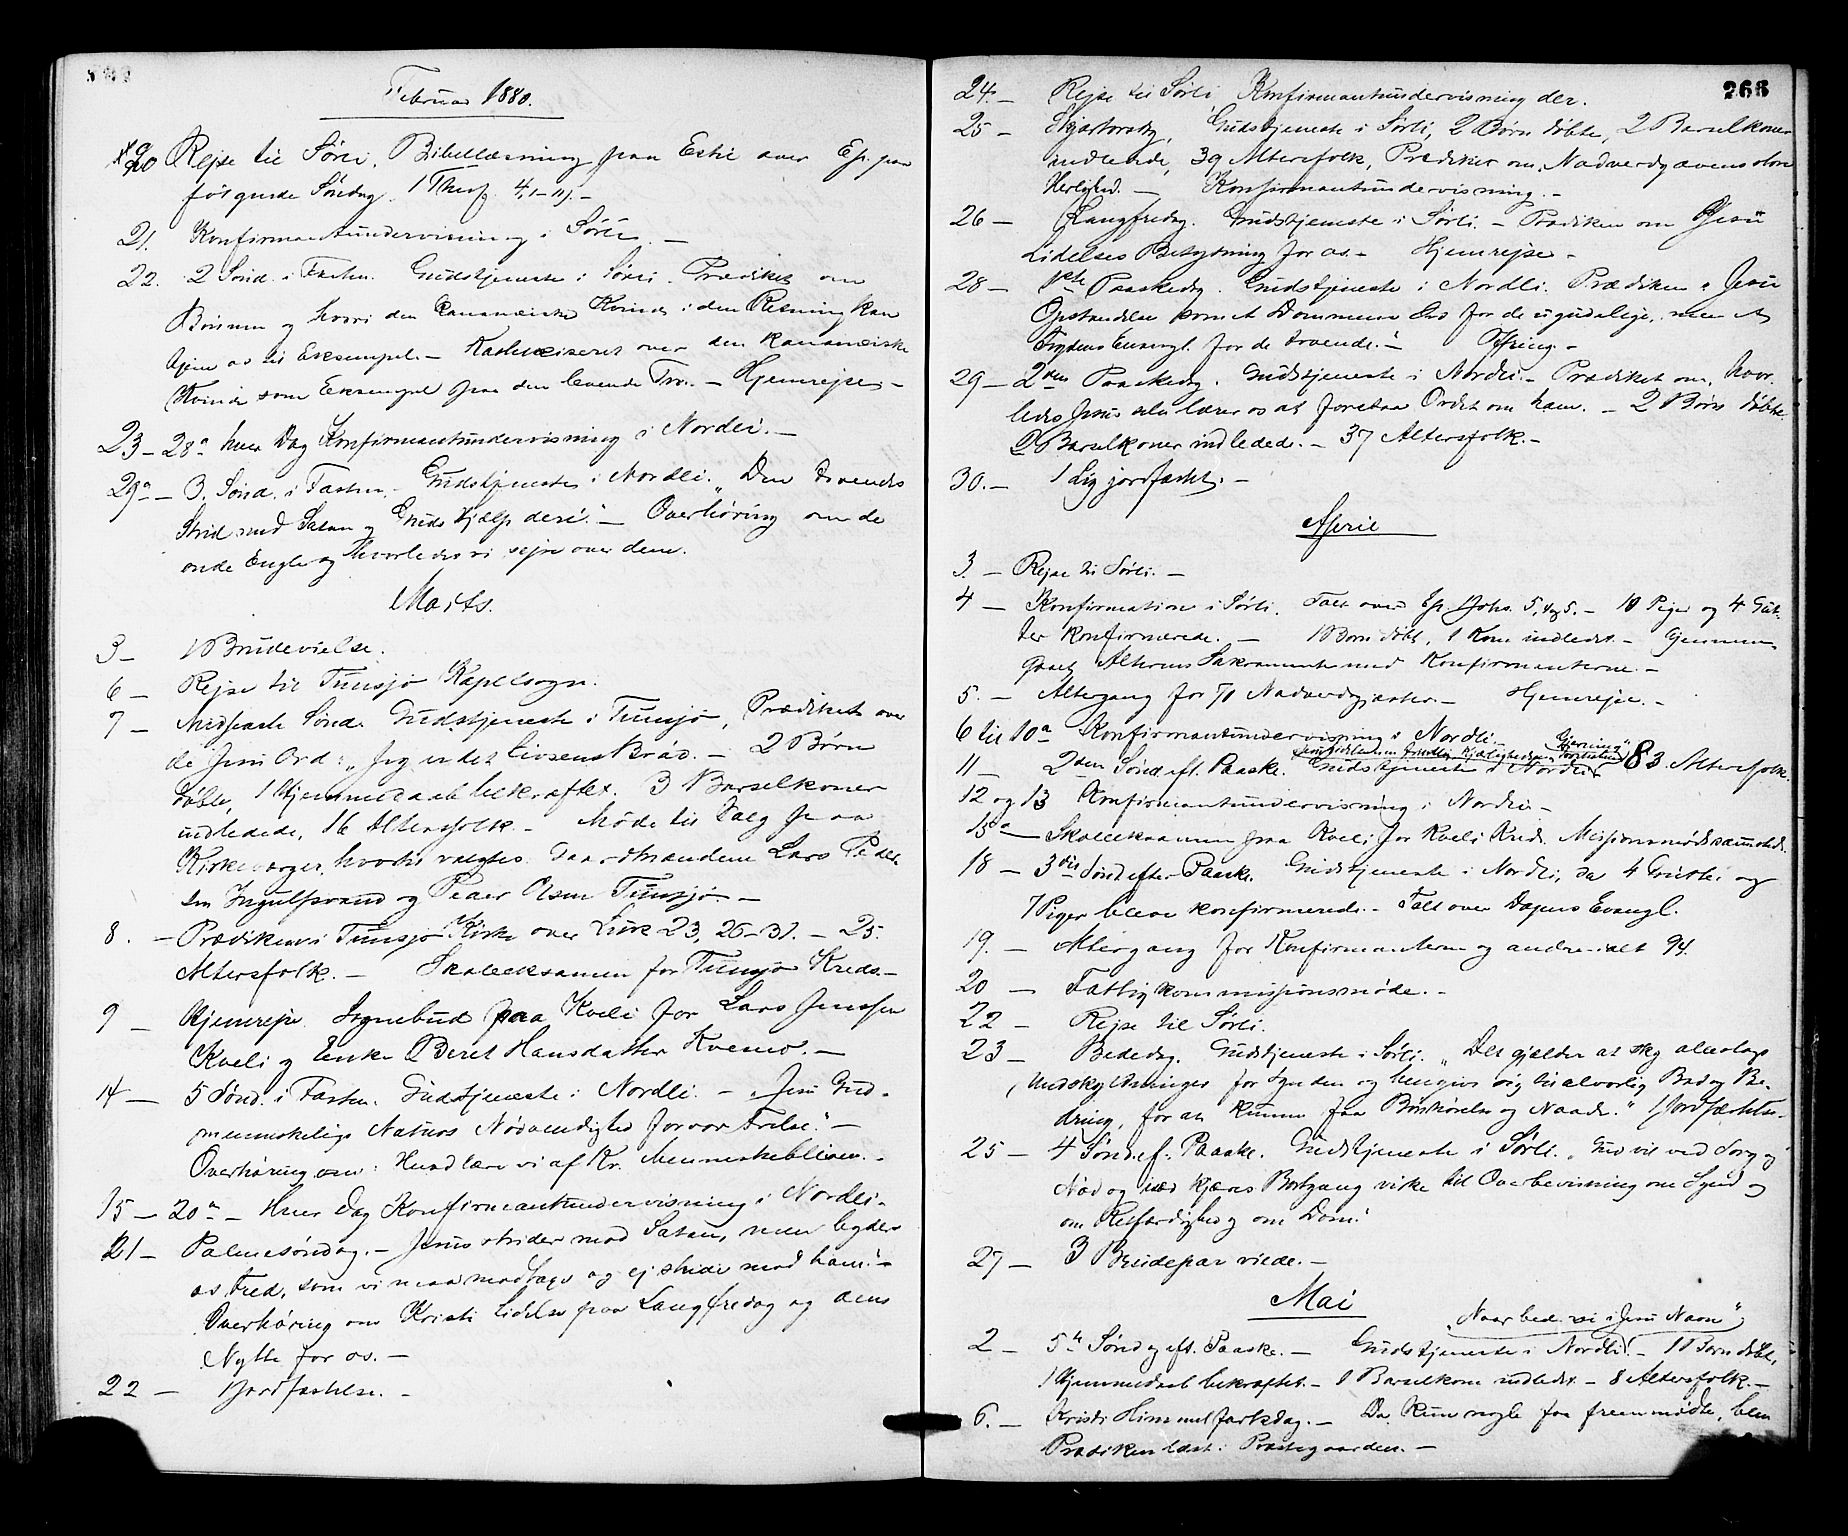 Februar 1880.
20 Rejse til Sørli. Bibellæsning paa Estil over Ep. paa
følgende Søndag. 1 Thess. 4, 1-11).-
21. Konfirmantundervisning i Sørli. -
22. 2 Sønd. i Fasten. Gudstjeneste i Sørli. Prædiket om
Bønnen og hvori den Kananæiske Kvinde i den Retning kan
tjene os til Eksempel. - Katekiseret over den kananæiske
Kvinde som Eksempel paa den levende Tro. - Hjemrejse -
23 - 28de hver Dag Konfirmantundervisning i Nordli. -
29de - 3. Sønd. i Fasten. Gudstjeneste i Nordli. „Den troendes
Strid med Satan og Guds Hjælp deri." - Overhøring om de
onde Engle og hvorledes vi sejre over dem.
Marts.
3 - 1 Brudevielse.
6 - Rejse til Tunsjø Kapelsogn.
7 - Midfaste Sønd. Gudstjeneste i Tunsjø. Prædiket over
de Jesu Ord: „Jeg er det Livsens Brød. - 2 Børn
døbte, 1 Hjemmedaab bekræftet. 3 Barselkoner
indledede, 16 Altersfolk. - Møde til Valg paa
Kirkeværger, hvortil valgtes Gaardmændene Lars Peder-
sen Ingulfsvand og Peder Olsen Tunsjø -
8. - Prædiken i Tunsjø Kirke over Luk 23, 26-31. - 25
Altersfolk. - Skoleeksamen for Tunsjø Kreds. -
9 - Hjemrejse. Sognebud paa Kveli for Lars Jenssen
Kveli og Enke Beret Hansdatter Kvemo. -
14 - 5 Sønd. i Fasten. Gudstjeneste i Nordli. - „Jesu Gud-
menneskelige Naturs Nødvendighed for vor Frelse." -
Overhøring om: Hvad lære vi af Kr. Menneskebliven. -
15 - 20de - Hver Dag Konfirmantundervisning i Nordli -
21 - Palmesøndag. - Jesus strider mod Satan, men byder
os Fred, som vi maa modtage og ej stride mod ham." -
Overhøring om Kristi Lidelse paa Langfredag og dens
Nytte for os. -
22 - 1 Jordfæstelse. -
266
24. - Rejse til Sørli. Konfirmantundervisning der.
25 - Skjærtorsdg. Gudstjeneste i Sørli, 2 Børn døbte, 2 Barselkoner
indledede, 39 Altersfolk, Prædiken om Nadverdgavens store
Herlighed. - Konfirmantundervisning. -
26 - Langfredag. Gudstjeneste i Sørli. - Prædiken om Jesu
Lidelses Betydning for os. - Hjemrejse -
28 - 1ste Paaskedag. Gudstjeneste i Nordli. Prædiken „Jesu
Opstandelse som et Dommens Bud for de ugudelige, men et
Frydens Evangl. for de troende." - Ofring. -
29 - 2den Paaskedg. Gudstjeneste i Nordli. - Prædiket om, hvor-
ledes Jesus selv lærer os at forstaa Ordet om ham. - 2 Børn døbte
2 Barselkoner indledede. - 37 Altersfolk. -
30. - 1 Lig jordfæstet. -
April
3. - Rejse til Sørli. -
4 - Konfirmation i Sørli. Talt over Ep. 1 Joh. 5, 4 og 5. - 10 Piger og 4 Gut-
ter konfirmerede. - 1 Barn døbt, 1 Kone indledet - Gjennem-
gaaet Alterens Sakramente med Konfirmanterne. -
5. - Altergang for 71 Nadverdgjæster. - Hjemrejse. -
6 til 10de Konfirmantundervisning i Nordli. -
11 - 2den Sønd. eft. Paaske. Gudstjeneste i Nordli. 83 Altersfolk.
12 og 13 Konfirmantundervisning i Nordli -
15de - Skoleeksamen paa Kveli for Kveli Kreds. Missionsmøde sammesteds.
18 - 3die Sønd. efter Paaske. Gudstjeneste i Nordli, da 4 Gutter og
7 Piger bleve konfirmerede. - Talt over Dagens Evangl.
19. - Altergang for Konfirmanterne og andre - ialt 94.
20 - Fattigkommissionsmøde. -
22 - Rejse til Sørli.
23 - Bededag. Gudstjeneste i Sørli. „Det gjælder at sky alleslags
Undskyldninger for Synden og hengive sig til alvorlig Bod og Be-
dring, for at kunne faa Bønhørelse og Naade." 1 Jordfæstelse.
25 - 4 Sønd. ef. Paaske. Gudstjeneste i Sørli. „Gud vil ved Sorg og
Nød og ved kjæres Bortgang virke til Overbevisning om Synd og
om Retfærdighed og om Dom."
27 - 3 Brudepar viede. -
Mai
„Naar bede vi i Jesu Navn"
2 - 5te Søndg eft. Paaske. - Gudstjeneste i Nordli. - 1 Barn døbt,
1 Hjemmedaab bekræftet. - 1 Barselkone indledet - 8 Altersfolk. -
6. - Kristi Himmelfartsdag. - Da kun nogle faa fremmødte, blev
Prædiken læst i Præstegaarden. -